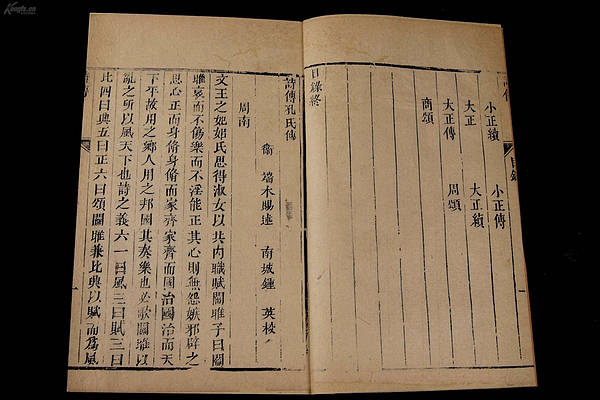 Kongfz.cn
目錄
一
小正續 小正傳
大正 大正續
大正傳 周頌
商頌
目錄終
詩傳孔氏傳
衛 端木賜述 南城鍾 英校
周南
文王之妃姒氏思得淑女以共內職賦關雎子曰關
雎哀而不傷樂而不淫能正其心則無怨嫉邪辟之
思心正而身脩身脩而家齊家齊而國治國治而天
下平故用之鄉人用之邦國其奏樂也必歌關雎以
亂之所以風天下也詩之義六一曰風二曰賦三曰
比四曰興五曰正六曰頌關雎兼比興以賦而爲風